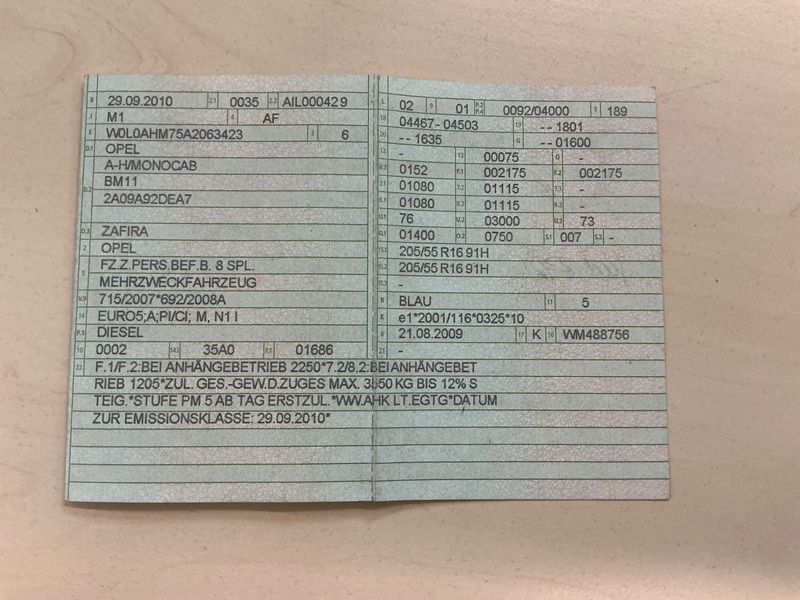 B 29.09.2010 2.1 0035 2.2 AIL000429
J M1 4 AF
E W0L0AHM75A2063423 3 6
D.1 OPEL
A-H/MONOCAB
D.2 BM11
2A09A92DEA7
D.3 ZAFIRA
2 OPEL
5 FZ.Z.PERS.BEF.B. 8 SPL.
MEHRZWECKFAHRZEUG
V.9 715/2007*692/2008A
14 EURO5;A;PI/CI; M, N1 I
P.3 DIESEL
10 0002 14.1 35A0 P.1 01686
L 02 9 01 P.2 P.4 0092/04000 T 189
18 04467-04503 19 --1801
20 --1635 G --01600
12 - 13 00075 Q -
V.7 0152 F.1 002175 F.2 002175
7.1 01080 7.2 01115 7.3 -
8.1 01080 8.2 01115 8.3 -
U.1 76 U.2 03000 U.3 73
O.1 01400 O.2 0750 S.1 007 S.2 -
15.1 205/55 R16 91H
15.2 205/55 R16 91H
15.3
R BLAU 11 5
K e1*2001/116*0325*10
6 21.08.2009 17 K 16 WM488756
21 -
22 F.1/F.2:BEI ANHÄNGEBETRIEB 2250*7.2/8.2:BEI ANHÄNGEBET
RIEB 1205*ZUL. GES.-GEW.D.ZUGES MAX. 3850 KG BIS 12% S
TEIG.*STUFE PM 5 AB TAG ERSTZUL.*VWW.AHK LT.EGTG*DATUM
ZUR EMISSIONSKLASSE: 29.09.2010*